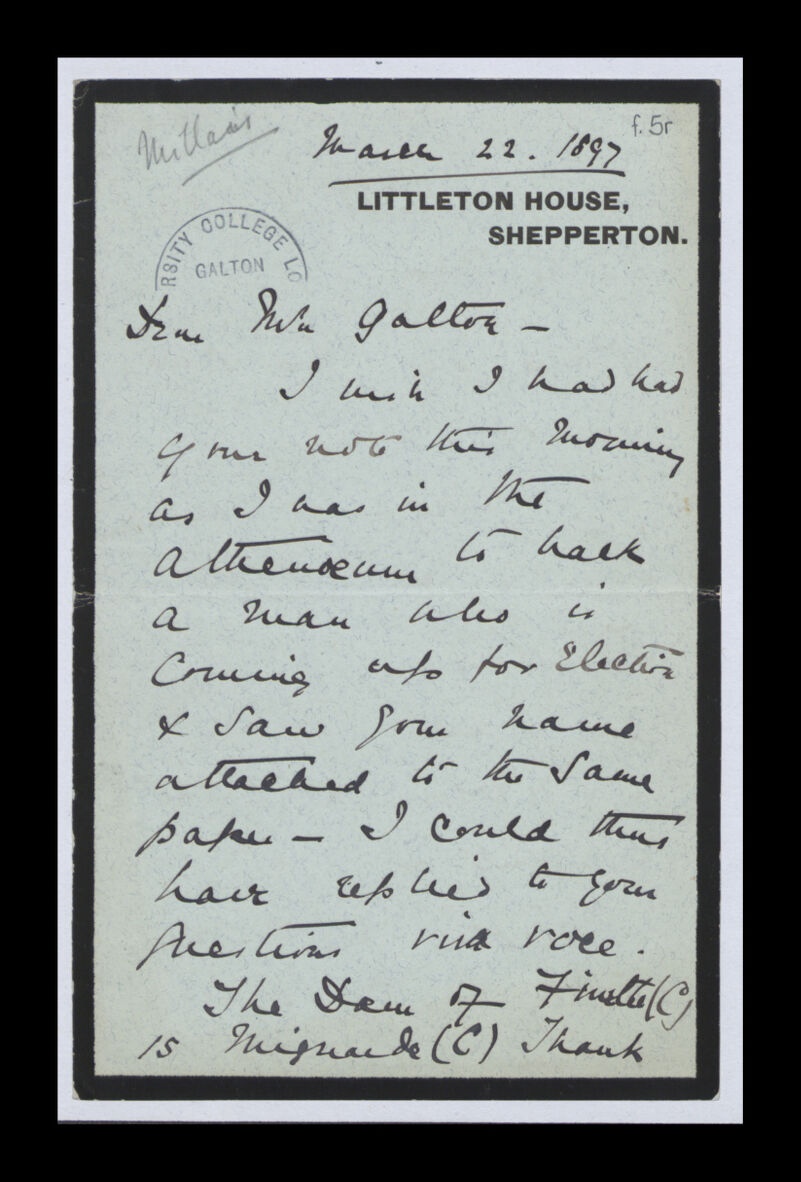 Millais
f. 5r
March 22. 1897
LITTLETON HOUSE,
SHEPPERTON.
RSITY COLLEGE LO
GALTON
Dear Mr Galton —
I wish I had had
your note this morning
as I was in the
Athenæum to back
a man who is
coming up for Election
& saw your name
attached to the same
paper — I could thus
have replied to your
questions viva voce.
The Dam of Finette (C)
is Mignarde (C) Thank